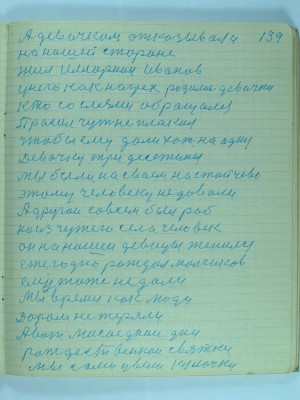 А девачкам отказывали 139
на нашей старане
жил Илларион Иванов
у него как на грех родилис девачки
Кто со слями обращался
Прасил чуть не плакал
чтобы ему дали хож на адну
Девочку три десетины
мы были на своем настойчево
этому человеку не давали
А другой совсем был раб
на из чужего села человек
он на нашей девицы женилу
ежегодно раждал малчиков
ему тоже не дали
Мы время как люди
Даром не теряли
А вот маследнаи дни
рождественнаи святки
мы сами цвели кулачки